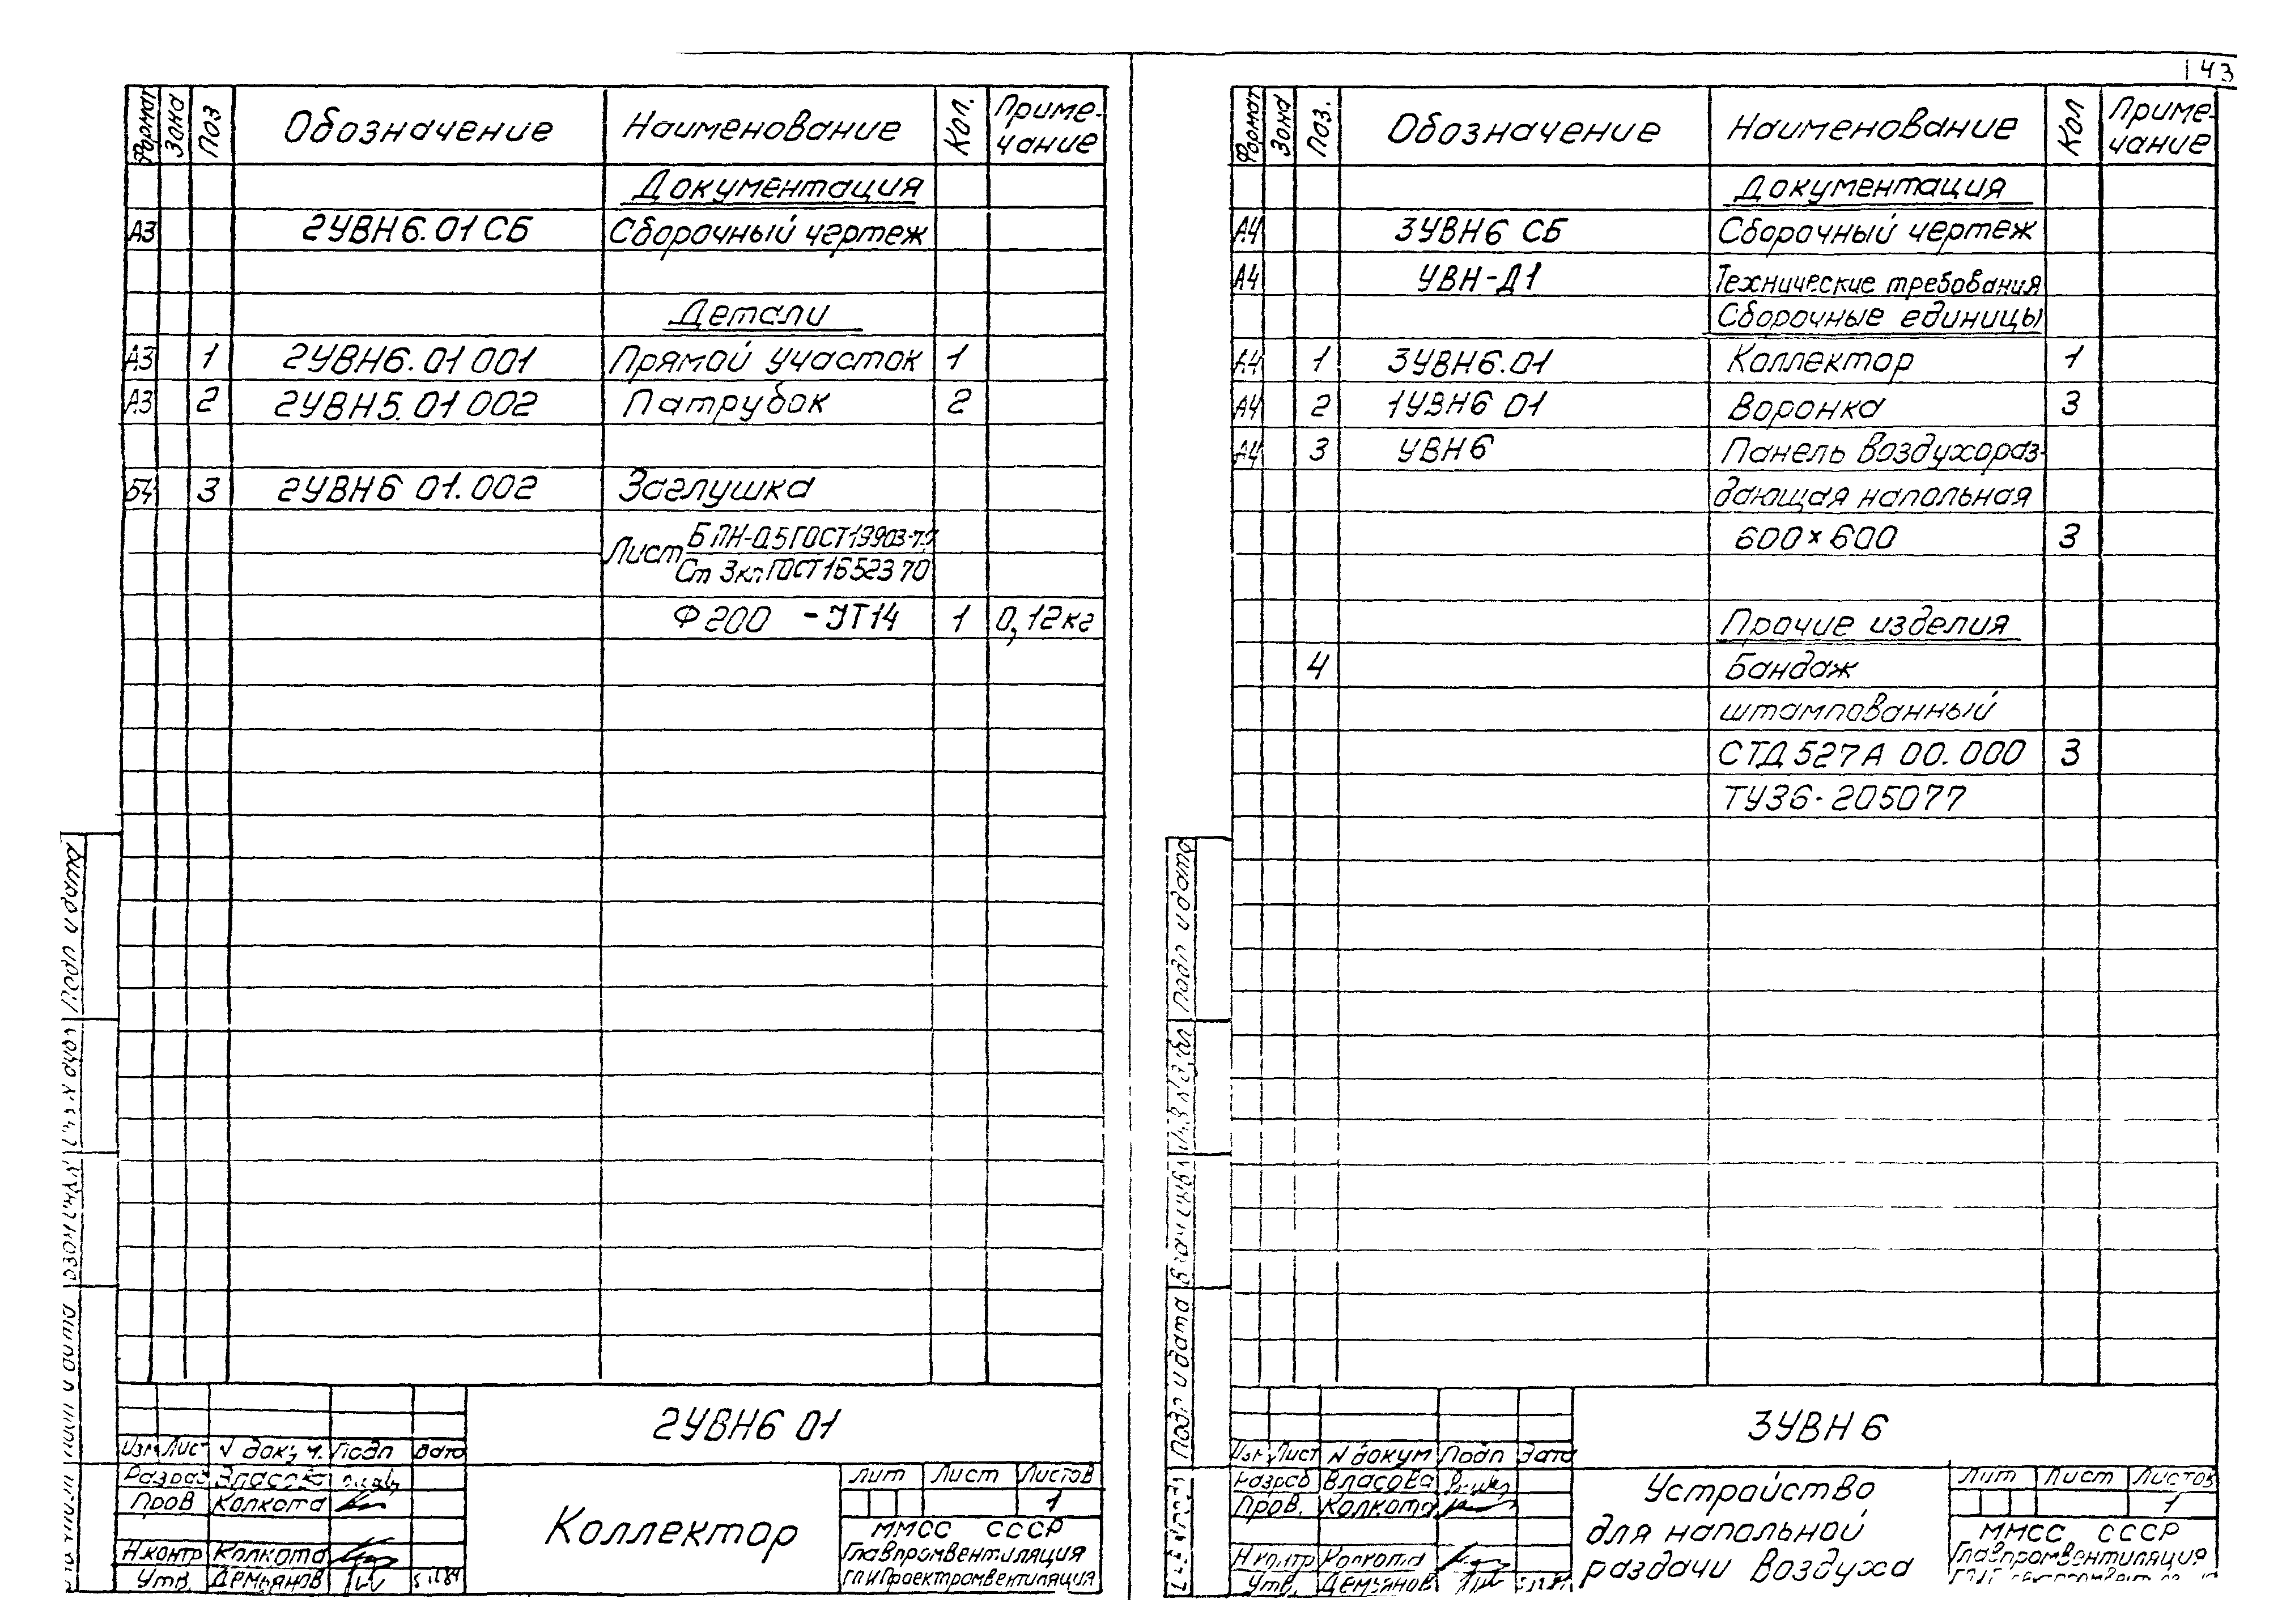 143
Формат Зона Поз Обозначение Наименование Кол. Приме-
чание
Документация
А3 2УВН6.01 СБ Сборочный чертеж
Детали
А3 1 2УВН6.01 001 Прямой участок 1
А3 2 2УВН5.01 002 Патрубок 2
Б4 3 2УВН6 01.002 Заглушка
Лист Б ПН-0,5 ГОСТ 19903-7
Ст 3кп ГОСТ 16523 70
Ф 200 - УТ14 1 0,12кг
Подп и дата
2УВН6 01
Изм Лист N докум. Подп Дата
Разраб Власова
Пров Колкота
Н.контр Колкота
Утв. Демьянов
Коллектор
Лит Лист Листов
1
ММСС СССР
Главпромвентиляция
ГПИ Проектпромвентиляция
Формат Зона Поз. Обозначение Наименование Кол Приме-
чание
Документация
А4 3УВН6 СБ Сборочный чертеж
А4 УВН-Д1 Технические требования
Сборочные единицы
А4 1 3УВН6.01 Коллектор 1
А4 2 1УВН6 01 Воронка 3
А4 3 УВН6 Панель воздухораз-
дающая напольная
600×600 3
Прочие изделия
4 Бандаж
штампованный
СТД 527А 00.000 3
ТУ36-205077
Подп и дата
Подп и дата
3УВН 6
Изм Лист N докум Подп Дата
Разраб Власова
Пров. Колкота
Н контр Колкота
Утв. Демьянов
Устройство
для напольной
раздачи воздуха
Лит Лист Листов
1
ММСС СССР
Главпромвентиляция